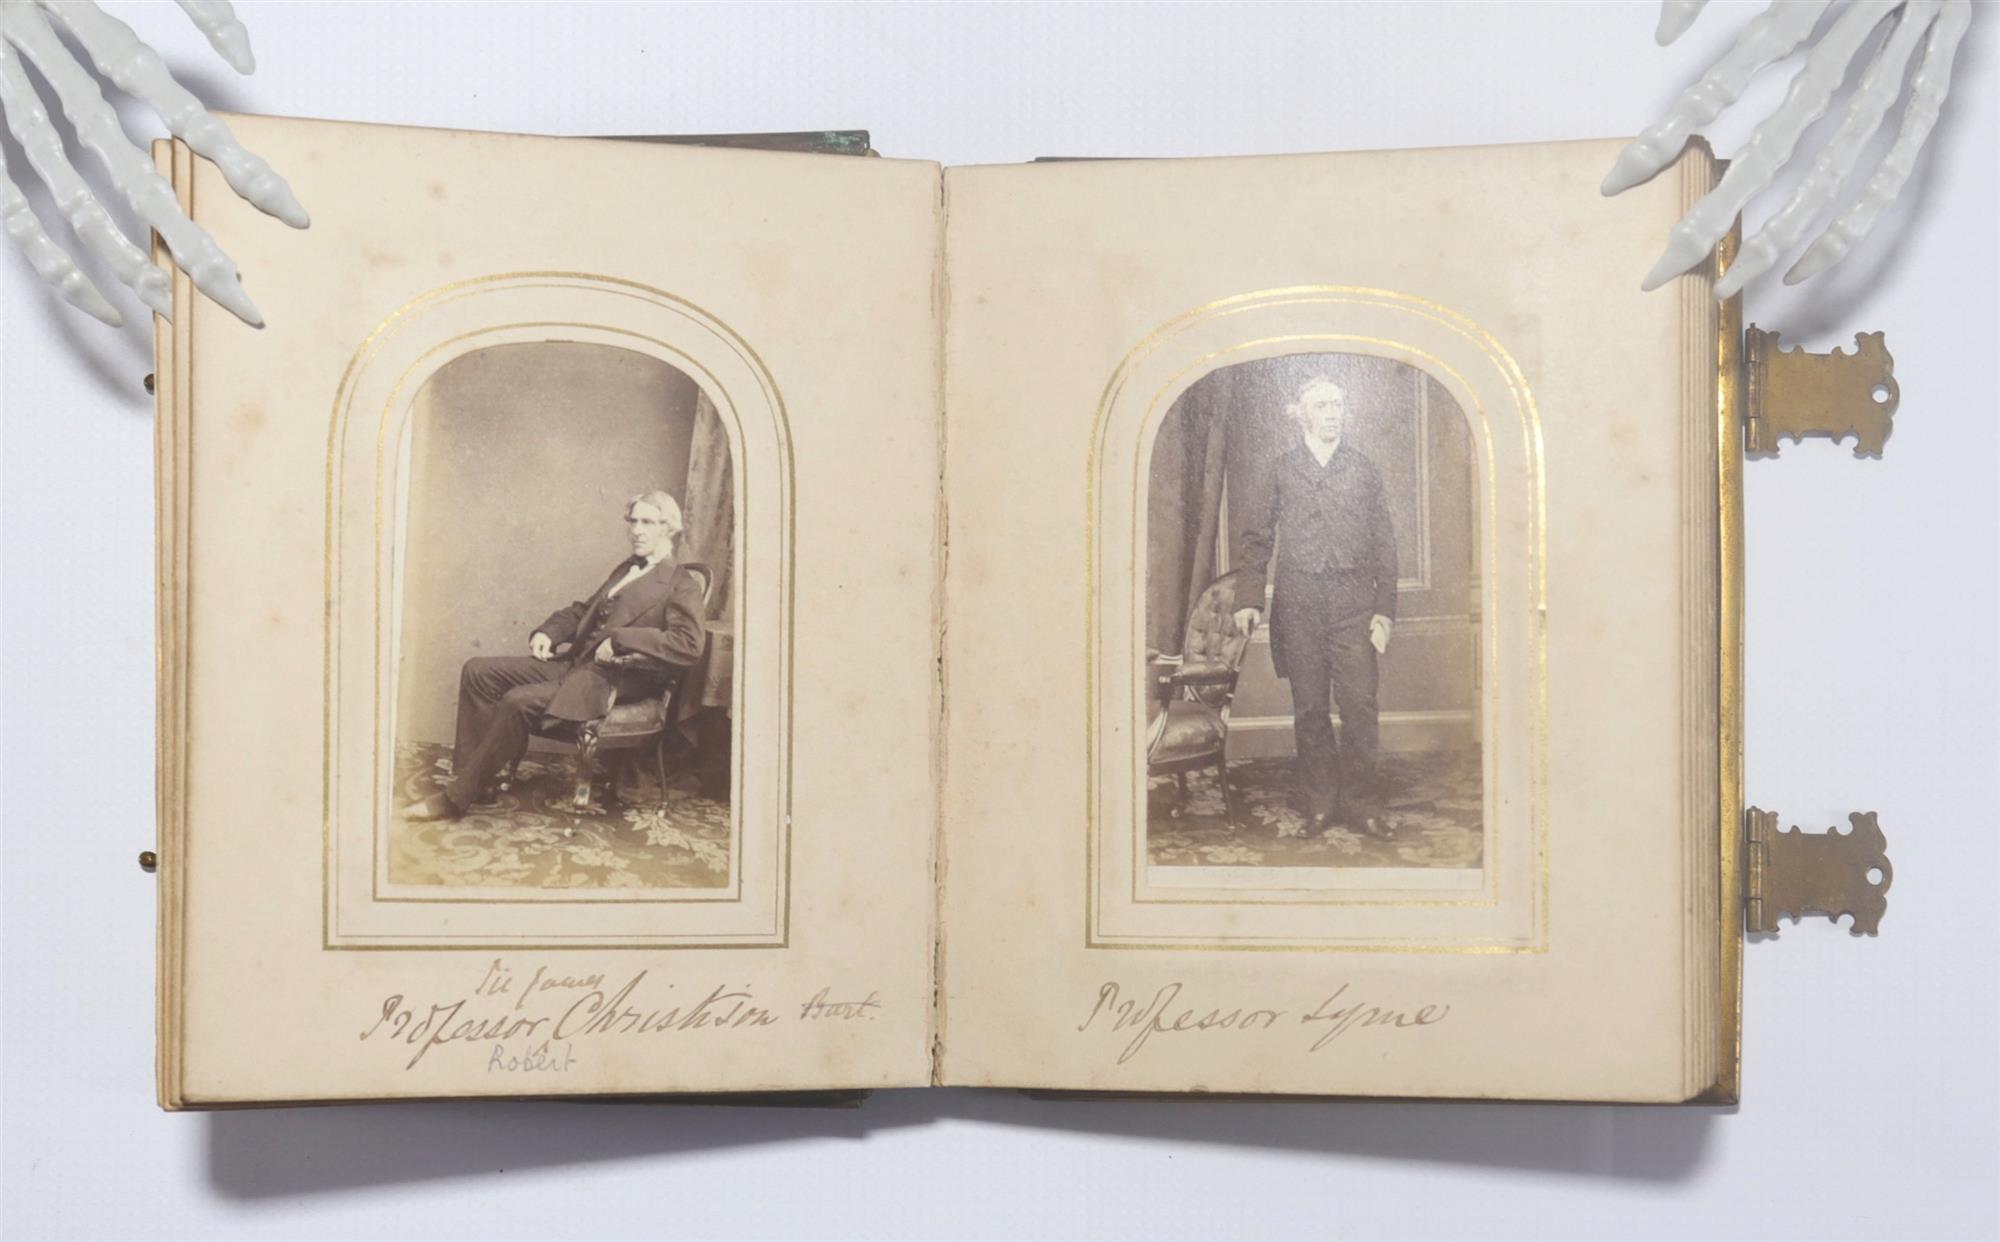 Sir James
Professor Christison Bart.
Robert
Professor Syme